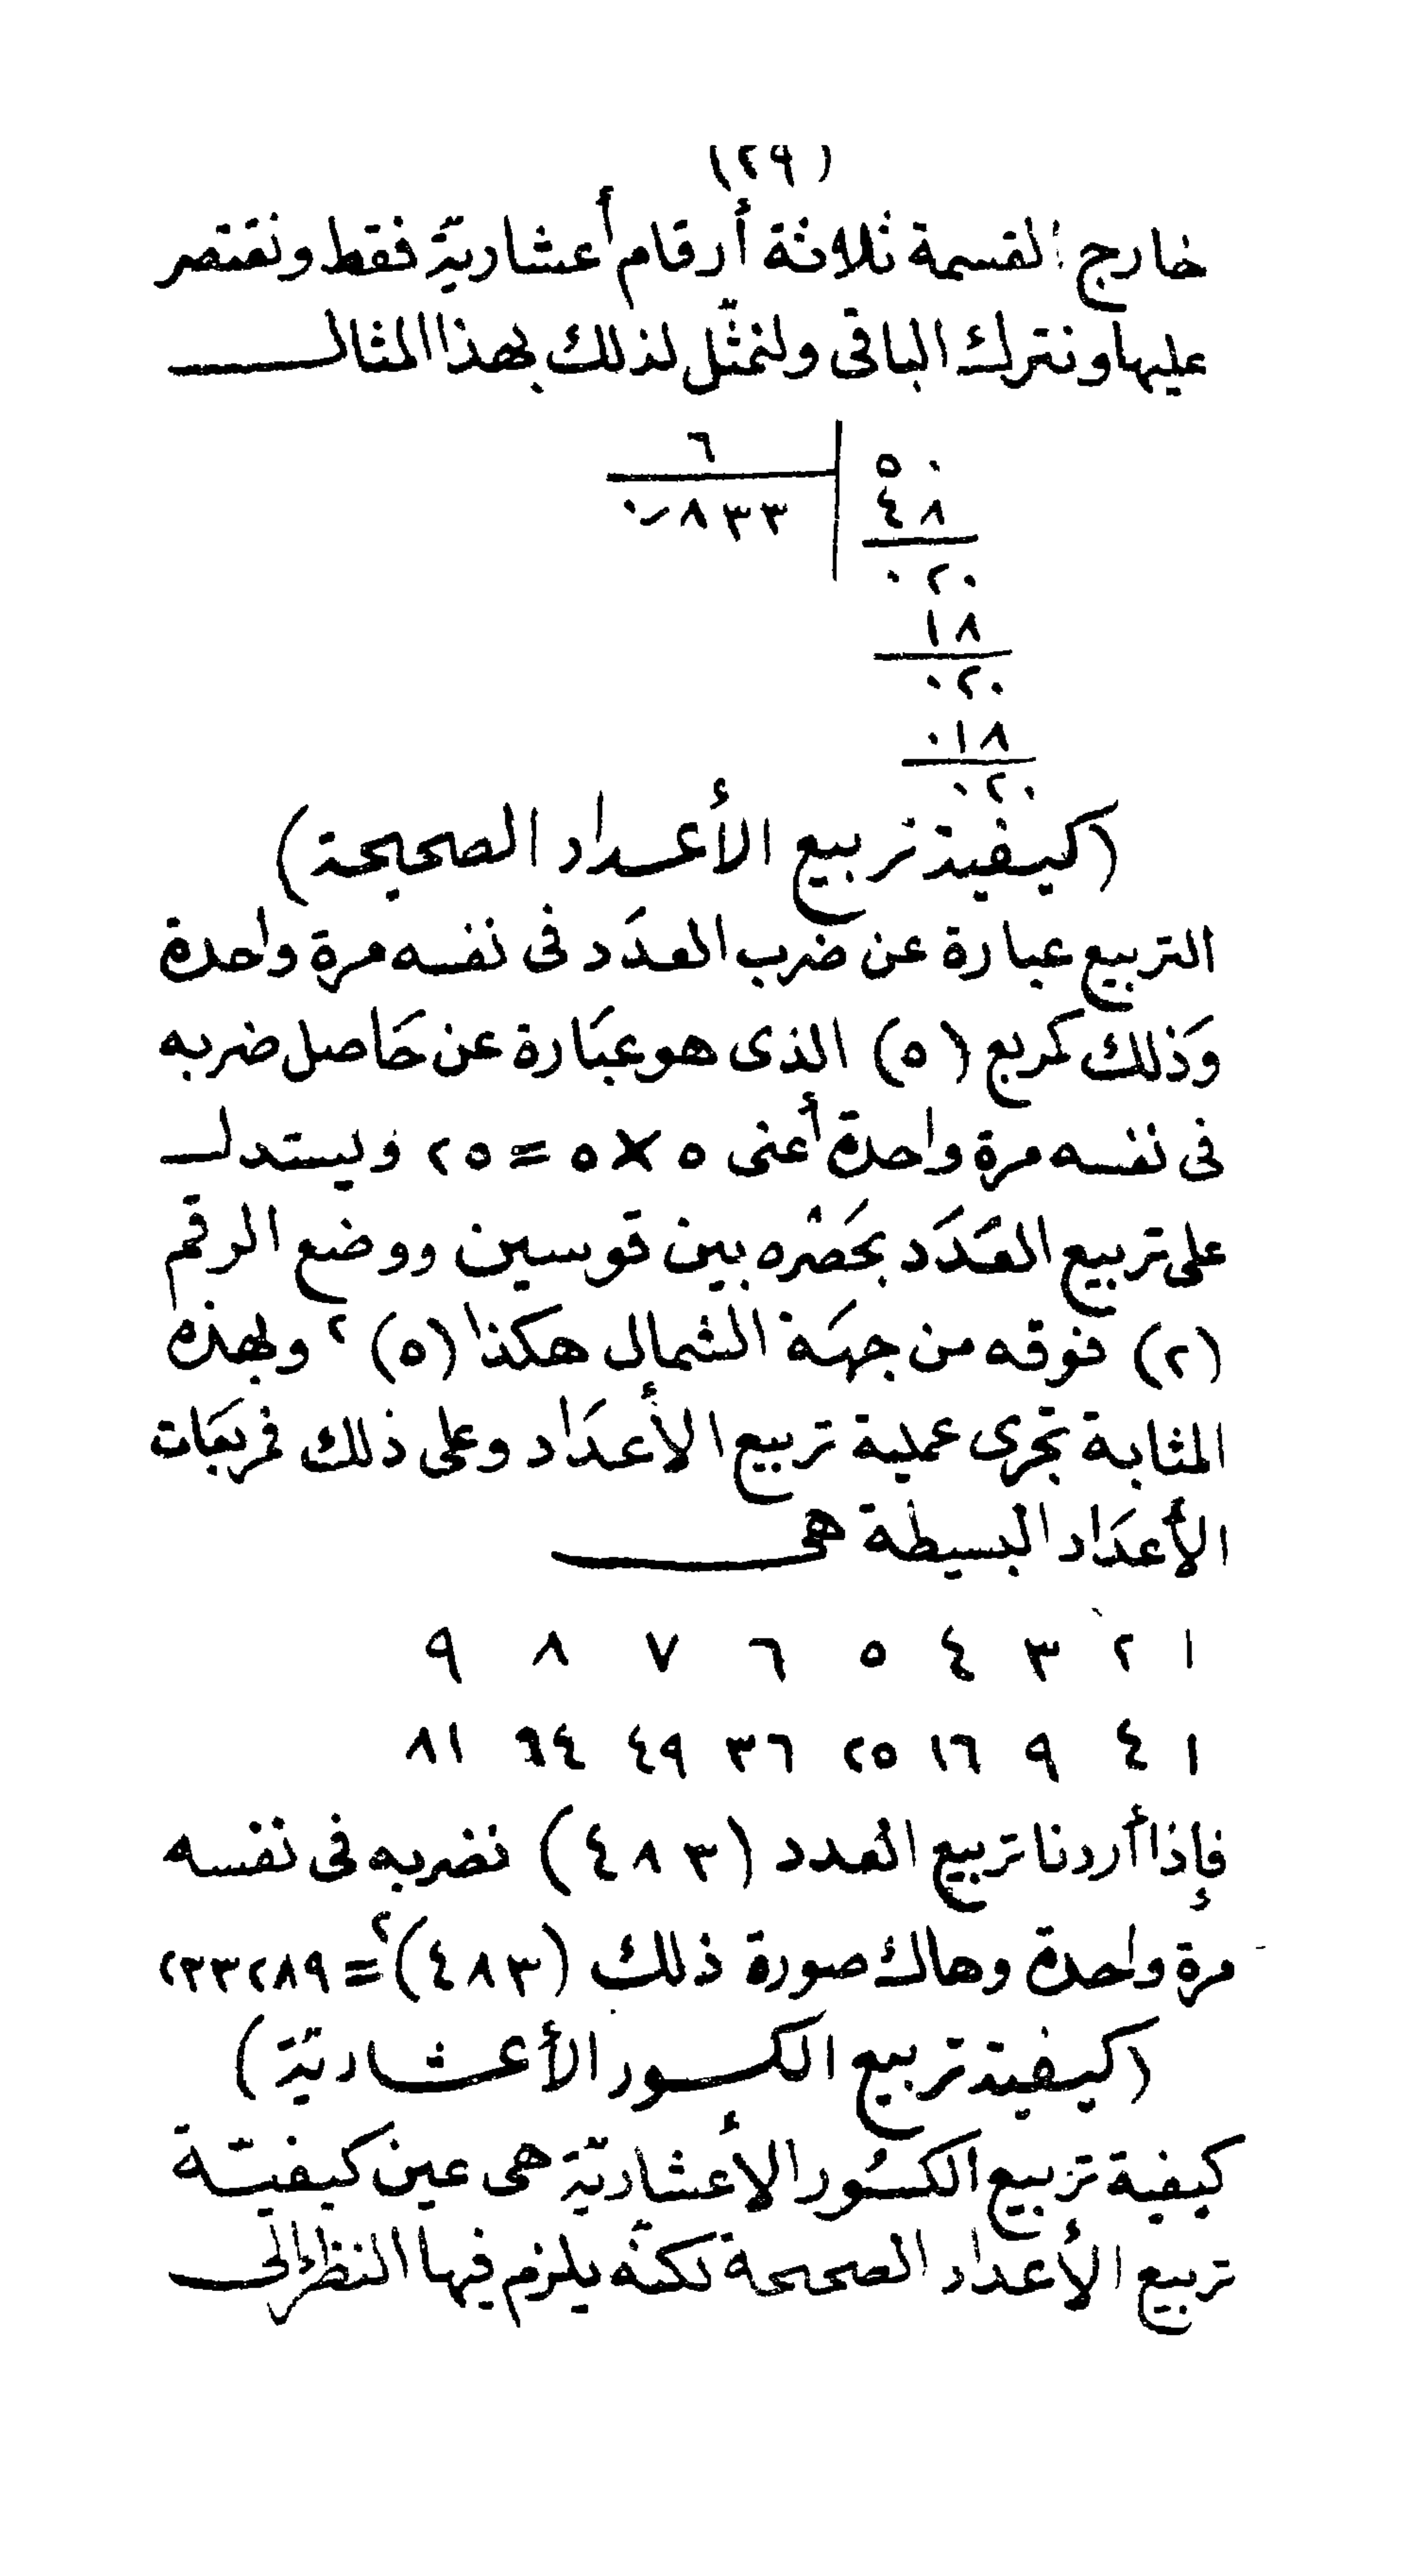 (٢٩)
خارج القسمة ثلاثة أرقام أعشاريّة فقط ونقتصر
عليها ونترك الباقى ولنمثّل لذلك بهذا المثال
٥٠ | ٦
٤٨ | ٠٫٨٣٣
٠٢٠
١٨
٠٢٠
٠١٨
٠٢٠
(كيفية تربيع الأعداد الصحيحة)
التربيع عبارة عن ضرب العدَد فى نفسه مرة واحدة
وَذلك كمربع (٥) الذى هو عبَارة عن حَاصل ضربه
فى نفسه مرة واحدة أعنى ٥ × ٥ = ٢٥ ويستدل
على تربيع العَدَد بحَصْره بين قوسين ووضع الرقم
(٢) فوقه من جهَة الشمال هكذا (٥)٢ وبهذه
المثابة تجرى عملية تربيع الأعدَاد وعلى ذلك فمربعَات
الأعدَاد البسيطة هى
١ ٢ ٣ ٤ ٥ ٦ ٧ ٨ ٩
١ ٤ ٩ ١٦ ٢٥ ٣٦ ٤٩ ٦٤ ٨١
فإذا أردنا تربيع العدد (٤٨٣) نضربه فى نفسه
مرة واحدة وهاك صورة ذلك (٤٨٣)٢ = ٢٣٣٢٨٩
(كيفية تربيع الكسور الأعشاريّة)
كيفية تربيع الكسُور الأعشاريّة هى عين كيفيّة
تربيع الأعداد الصحيحة لكنّه يلزم فيها النظر إلى